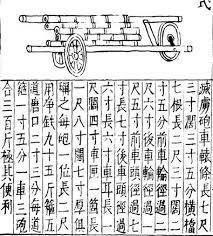 式
滅虜砲車轅條長七尺
三寸闊三寸五分橫檔
七根長二尺三寸闊二
寸五分前車輪徑過二
尺六寸後車輪徑過一
寸長七寸後車頭徑過
六寸長六寸車耳長
尺闊四寸車匣一箇長
一尺八寸闊七寸厚俱
之每砲一位長二尺
用淨鐵九十五斤箍五
道口二寸三分每道
箍一寸五分一車三砲
合三百斤極其便利